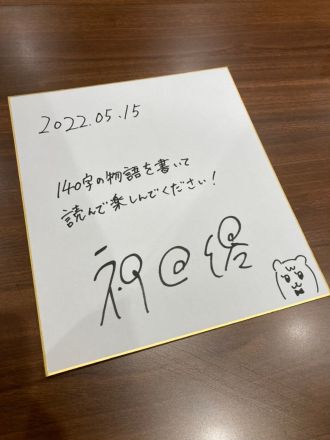 2022.05.15
140字の物語を書いて
読んで楽しんでください!
神田澪